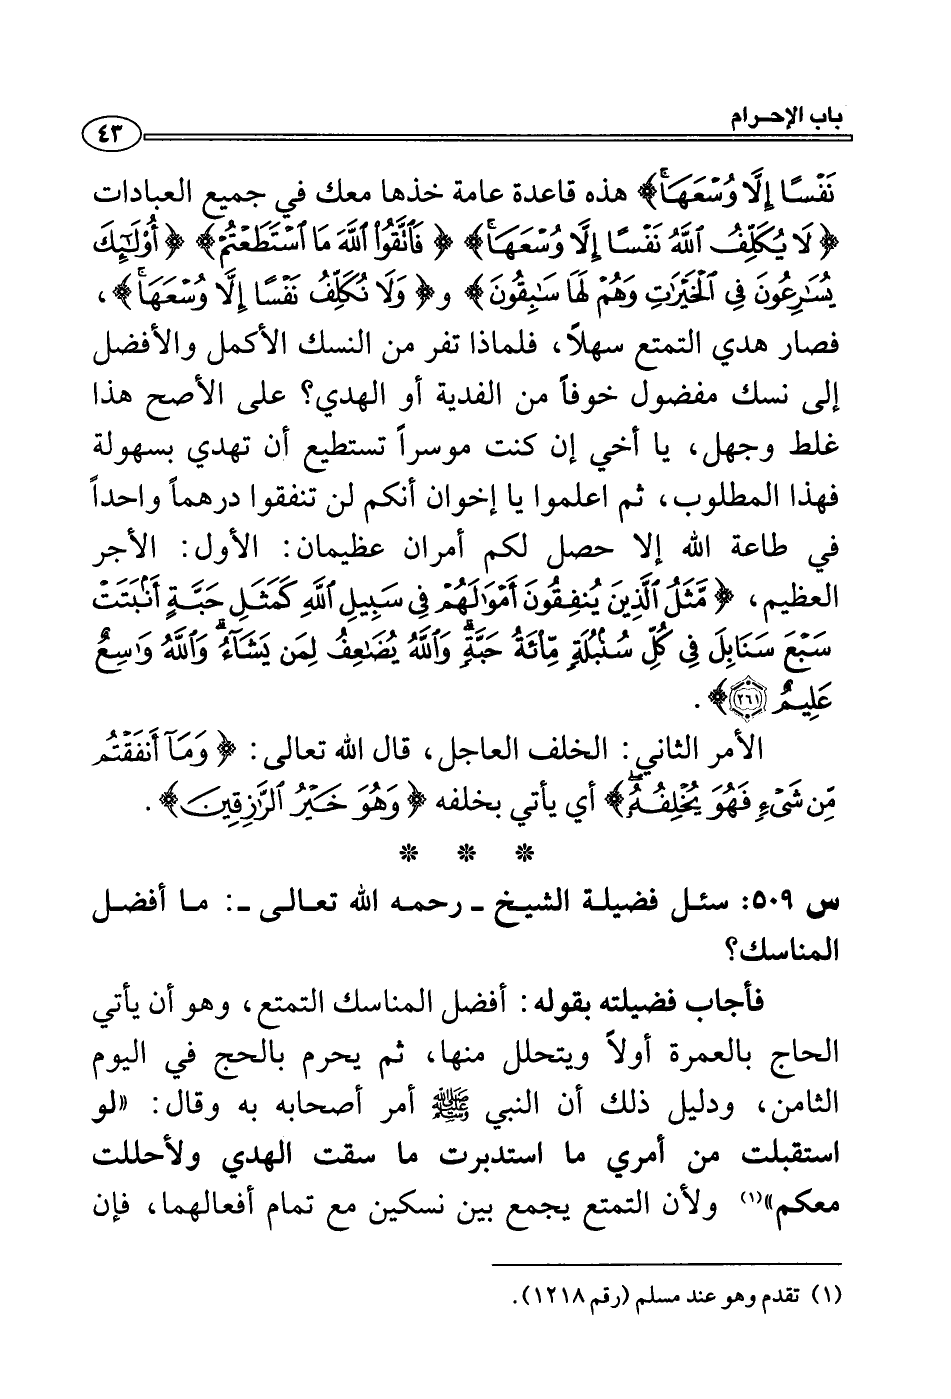 باب الإحرام
٤٣
نَفْسًا إِلَّا وُسْعَهَا﴾ هذه قاعدة عامة خذها معك في جميع العبادات
﴿لَا يُكَلِّفُ اللَّهُ نَفْسًا إِلَّا وُسْعَهَا﴾ ﴿فَاتَّقُوا اللَّهَ مَا اسْتَطَعْتُمْ﴾ ﴿أُوْلَٰٓئِكَ
يُسَٰرِعُونَ فِي الْخَيْرَٰتِ وَهُمْ لَهَا سَٰبِقُونَ﴾ و﴿وَلَا نُكَلِّفُ نَفْسًا إِلَّا وُسْعَهَا﴾،
فصار هدي التمتع سهلاً، فلماذا تفر من النسك الأكمل والأفضل
إلى نسك مفضول خوفاً من الفدية أو الهدي؟ على الأصح هذا
غلط وجهل، يا أخي إن كنت موسراً تستطيع أن تهدي بسهولة
فهذا المطلوب، ثم اعلموا يا إخوان أنكم لن تنفقوا درهماً واحداً
في طاعة الله إلا حصل لكم أمران عظيمان: الأول: الأجر
العظيم، ﴿مَّثَلُ الَّذِينَ يُنفِقُونَ أَمْوَٰلَهُمْ فِي سَبِيلِ اللَّهِ كَمَثَلِ حَبَّةٍ أَنۢبَتَتْ
سَبْعَ سَنَابِلَ فِي كُلِّ سُنۢبُلَةٍ مِّائَةُ حَبَّةٍ ۗ وَاللَّهُ يُضَٰعِفُ لِمَن يَشَآءُ ۗ وَاللَّهُ وَٰسِعٌ
عَلِيمٌ ٢٦١﴾.
الأمر الثاني: الخلف العاجل، قال الله تعالى: ﴿وَمَآ أَنفَقْتُم
مِّن شَيْءٍ فَهُوَ يُخْلِفُهُۥ ۖ﴾ أي يأتي بخلفه ﴿وَهُوَ خَيْرُ الرَّٰزِقِينَ﴾.
* * *
س ٥٠٩: سئل فضيلة الشيخ ـ رحمه الله تعالى ـ: ما أفضل
المناسك؟
فأجاب فضيلته بقوله: أفضل المناسك التمتع، وهو أن يأتي
الحاج بالعمرة أولاً ويتحلل منها، ثم يحرم بالحج في اليوم
الثامن، ودليل ذلك أن النبي ﷺ أمر أصحابه به وقال: «لو
استقبلت من أمري ما استدبرت ما سقت الهدي ولأحللت
معكم»(١) ولأن التمتع يجمع بين نسكين مع تمام أفعالهما، فإن
(١) تقدم وهو عند مسلم (رقم ١٢١٨).